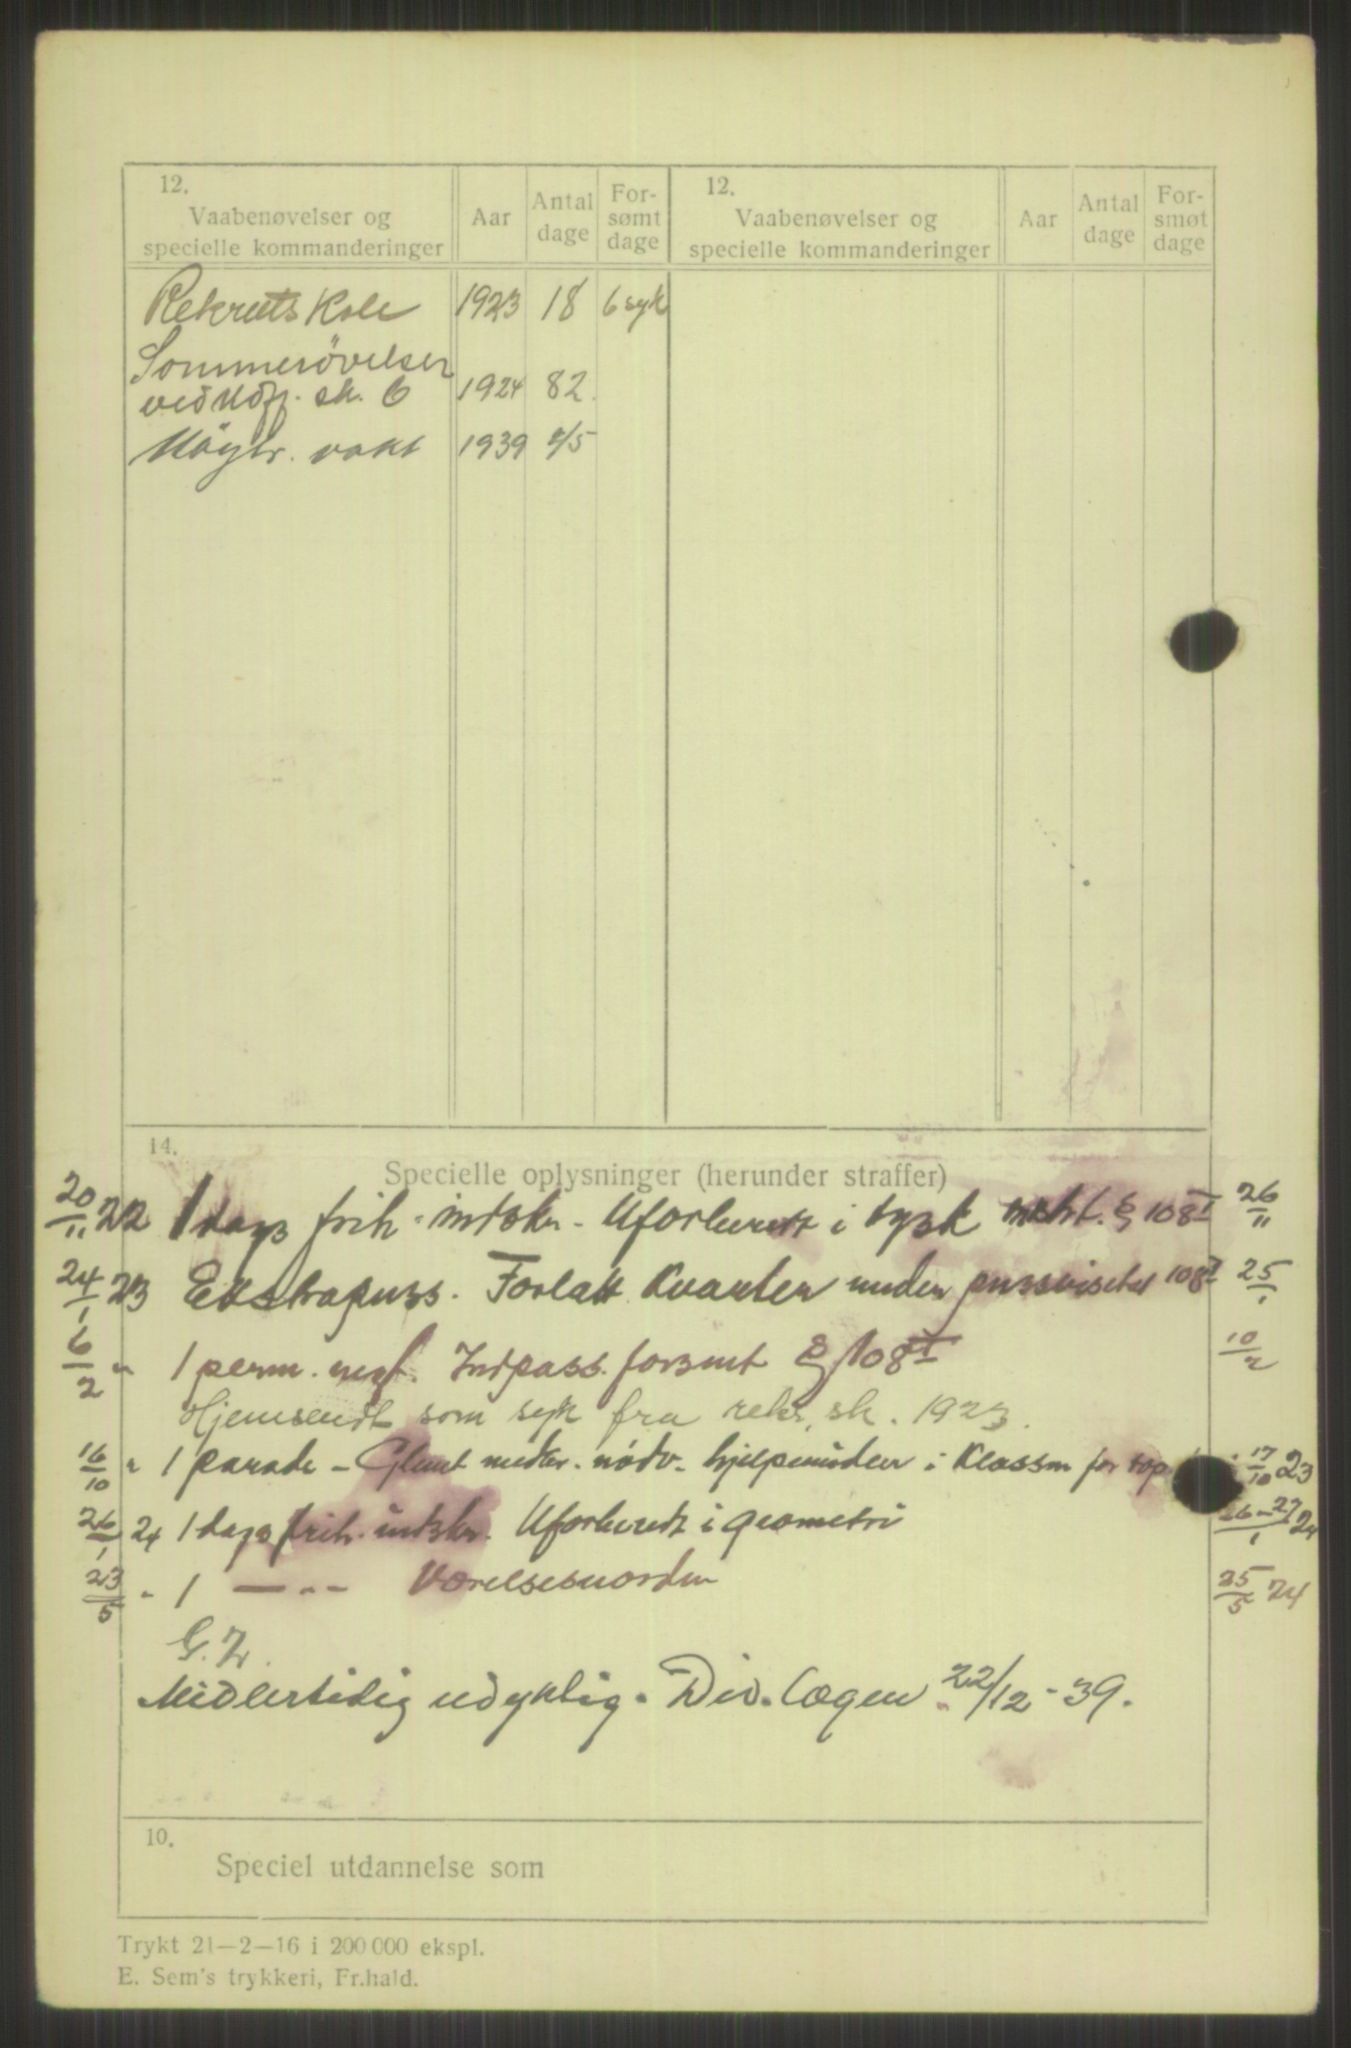 12.
Vaabenøvelser og
specielle kommanderinger
Aar
Antal
dage
For-
sømt
dage
12.
Vaabenøvelser og
specielle kommanderinger
Aar
Antal
dage
For-
smøt
dage
Rekrutskole 1923 18 6 syk
Sommerövelser
ved Uoff. sk. 6 1924 82
Nöytr. vakt 1939
14.
Specielle oplysninger (herunder straffer)
20/11 22 1 dags frih. indskr. Uforberedt i tysk § 108 I 26/11
24/1 23 Ekstrapuss. Forlatt Kvarter under pussvisitas 108 I 25/1
6/2 " 1 perm. negt. Indpass. forsmt § 108 I 10/2
Hjemsendt som syk fra rekr. sk. 1923.
16/10 " 1 parade - Glemt medbr. nödv. hjelpemidler i Klassen for top 17/10 23
26/1 24 1 dags frih. indskr. Uforberedt i geometri 26-27/1 24
23/5 " 1 — " — Værelsesuorden 25/5 24
Midlertidig udyktig. Div. Lægen 22/12 - 39.
10.
Speciel utdannelse som
Trykt 21—2—16 i 200 000 ekspl.
E. Sem's trykkeri, Fr.hald.